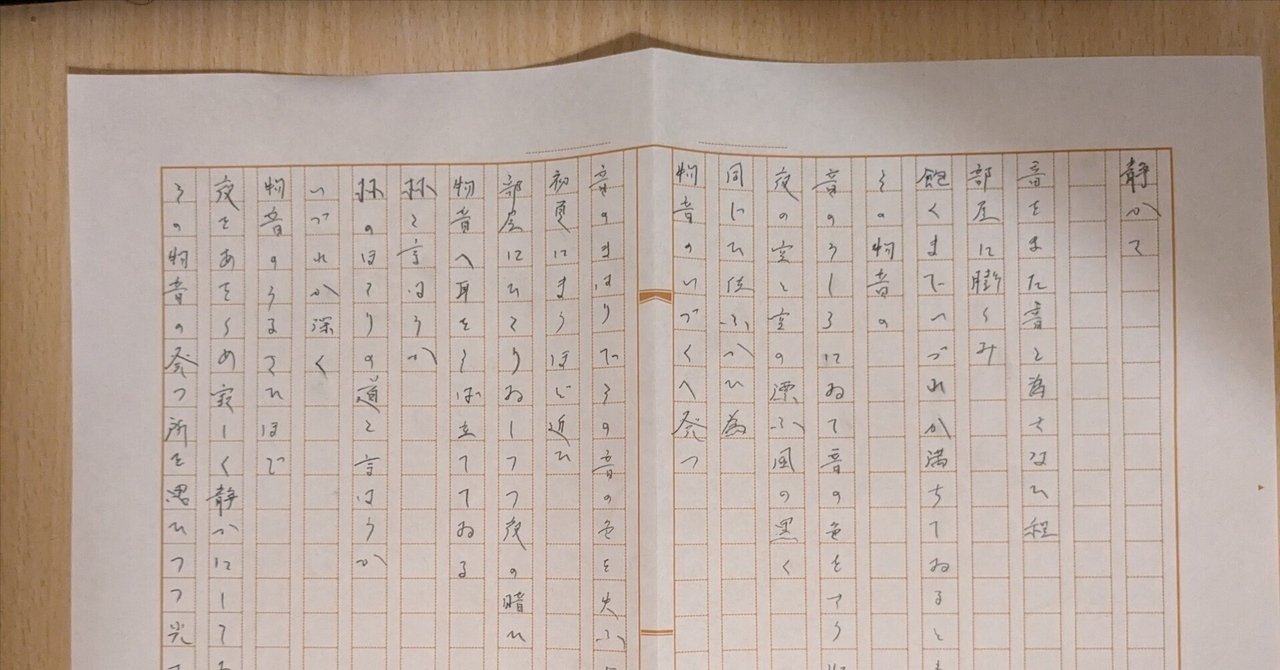 静かで
音をまた音と為さなひ程
部屋に膨らみ
飽くまでいづれか満ちてゐると
その物音の
音のうしろにゐて音の色をすう
夜の空と空の漂ふ風の黒く
同じひ位ふかひ為
物音のいづくへ発つ
音のまはりでその音の色を失ふ
初更にまうほど近ひ
部屋にひとりゐしつつ夜の暗ひ
物音へ耳をそば立ててゐる
林と言はうか
林のほとりの道と言はうか
いづれか深く
物音のうるさひほど
夜をあきらめ寂しく静かにして
その物音の発つ所を思ひつつ光